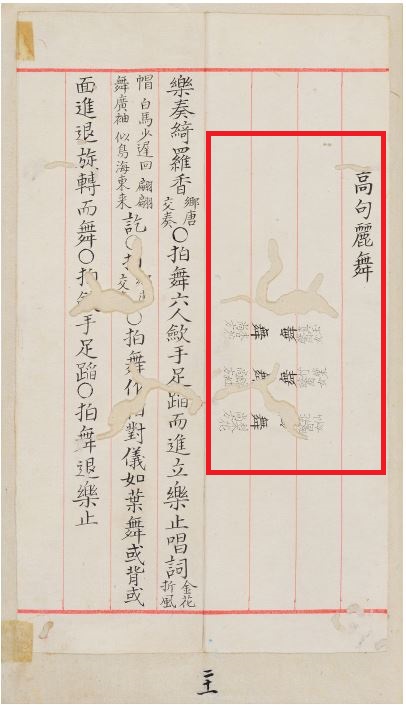 高句麗舞
舞 舞
舞
舞
樂奏綺羅香鄉唐交奏〇拍舞六人歛手足蹈而進立樂止唱詞金花折風
帽 白馬少遲回 翩翩舞廣袖 似鳥海東来訖〇拍 交〇拍舞作 對儀如葉舞或背或
面進退旋轉而舞〇拍 手足蹈〇拍舞退樂止
二十一